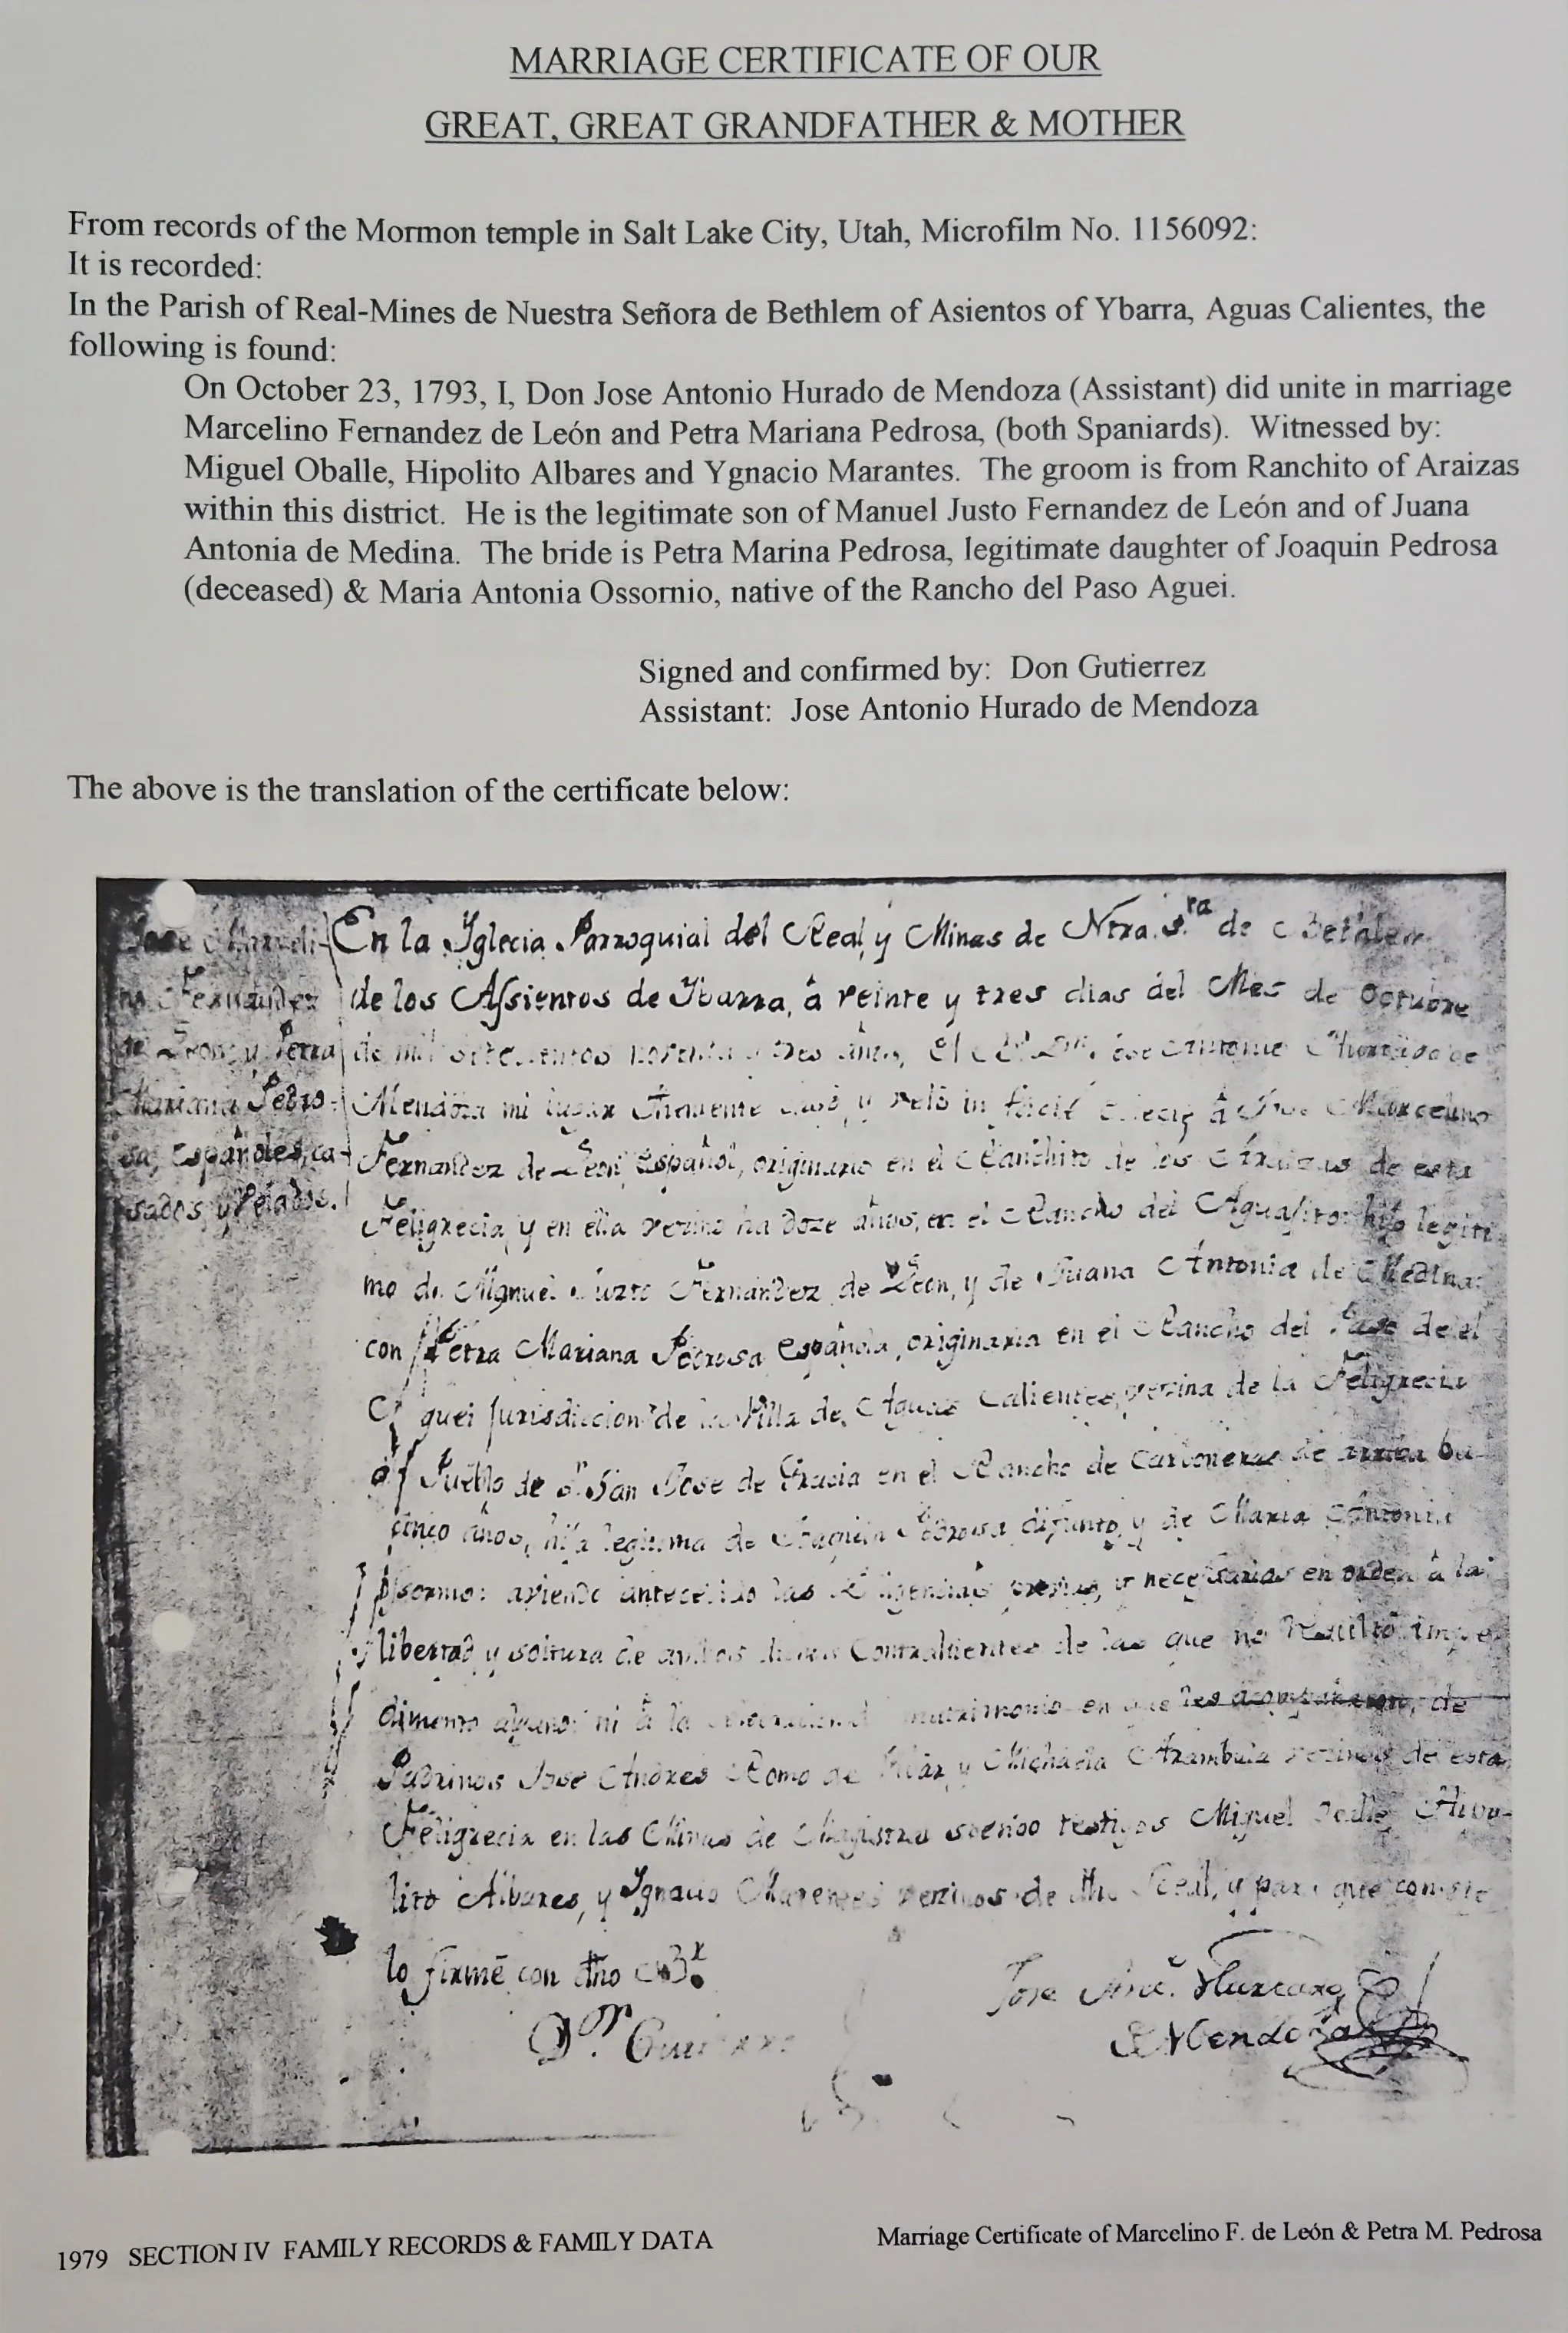 MARRIAGE CERTIFICATE OF OUR
GREAT, GREAT GRANDFATHER & MOTHER
From records of the Mormon temple in Salt Lake City, Utah, Microfilm No. 1156092:
It is recorded:
In the Parish of Real-Mines de Nuestra Señora de Bethlem of Asientos of Ybarra, Aguas Calientes, the
following is found:
On October 23, 1793, I, Don Jose Antonio Hurado de Mendoza (Assistant) did unite in marriage
Marcelino Fernandez de León and Petra Mariana Pedrosa, (both Spaniards). Witnessed by:
Miguel Oballe, Hipolito Albares and Ygnacio Marantes. The groom is from Ranchito of Araizas
within this district. He is the legitimate son of Manuel Justo Fernandez de León and of Juana
Antonia de Medina. The bride is Petra Marina Pedrosa, legitimate daughter of Joaquin Pedrosa
(deceased) & Maria Antonia Ossornio, native of the Rancho del Paso Aguei.
Signed and confirmed by: Don Gutierrez
Assistant: Jose Antonio Hurado de Mendoza
The above is the translation of the certificate below:
Jose Marceli-
no Fernandez
de Leon, y Petra
Mariana Pedro-
sa, españoles, ca-
sados y velados.
En la Yglecia Parroquial del Real y Minas de Ntra. Sra de Betlem
de los Assientos de Ybarra, á veinte y tres dias del Mes de Octubre
de mil setecientos noventa y tres años, el Br. Dn. Jose Antonio Hurtado de
Mendoza mi lugar Theniente casó, y veló in facie á Jose Marcelino
Fernandez de Leon, español, originario en el Ranchito de los Araizas de esta
Feligrecia, y en ella vezino ha doze años, en el Rancho del Aguajito: hijo legiti
mo de Manuel Justo Fernandez de Leon, y de Juana Antonia de Medina:
con Petra Mariana Pedrosa española, originaria en el Rancho del Paso de el
guei Jurisdiccion de la Villa de Aguas Calientes, vezina de la Feligrecia
Pueblo de Sr. San Jose de Gracia en el Rancho de Carboneras de
cinco años, hija legitima de Joaquin Pedrosa difunto, y de Maria Antonia
aviendo antecedido las Diligencias previas, y necessarias en orden á la
libertad y soltura de ambos dichos Contrahientes de las que no resultó impe
dimento alguno: ni á la celebracion matrimonio en que les acompañaron, de
Padrinos Jose Andres Romo de Vibar, y Michaela Arambula vezinos de esta
Feligrecia en las Minas de siendo testigos Miguel Oalle, Hipo-
lito Albares, y Ygnacio Marentes vezinos de dho Real, y para que conste
lo firmé con dho Br.
Dor. Gutierrez
Jose Anto. Hurtado
de Mendoza
1979 SECTION IV FAMILY RECORDS & FAMILY DATA
Marriage Certificate of Marcelino F. de León & Petra M. Pedrosa